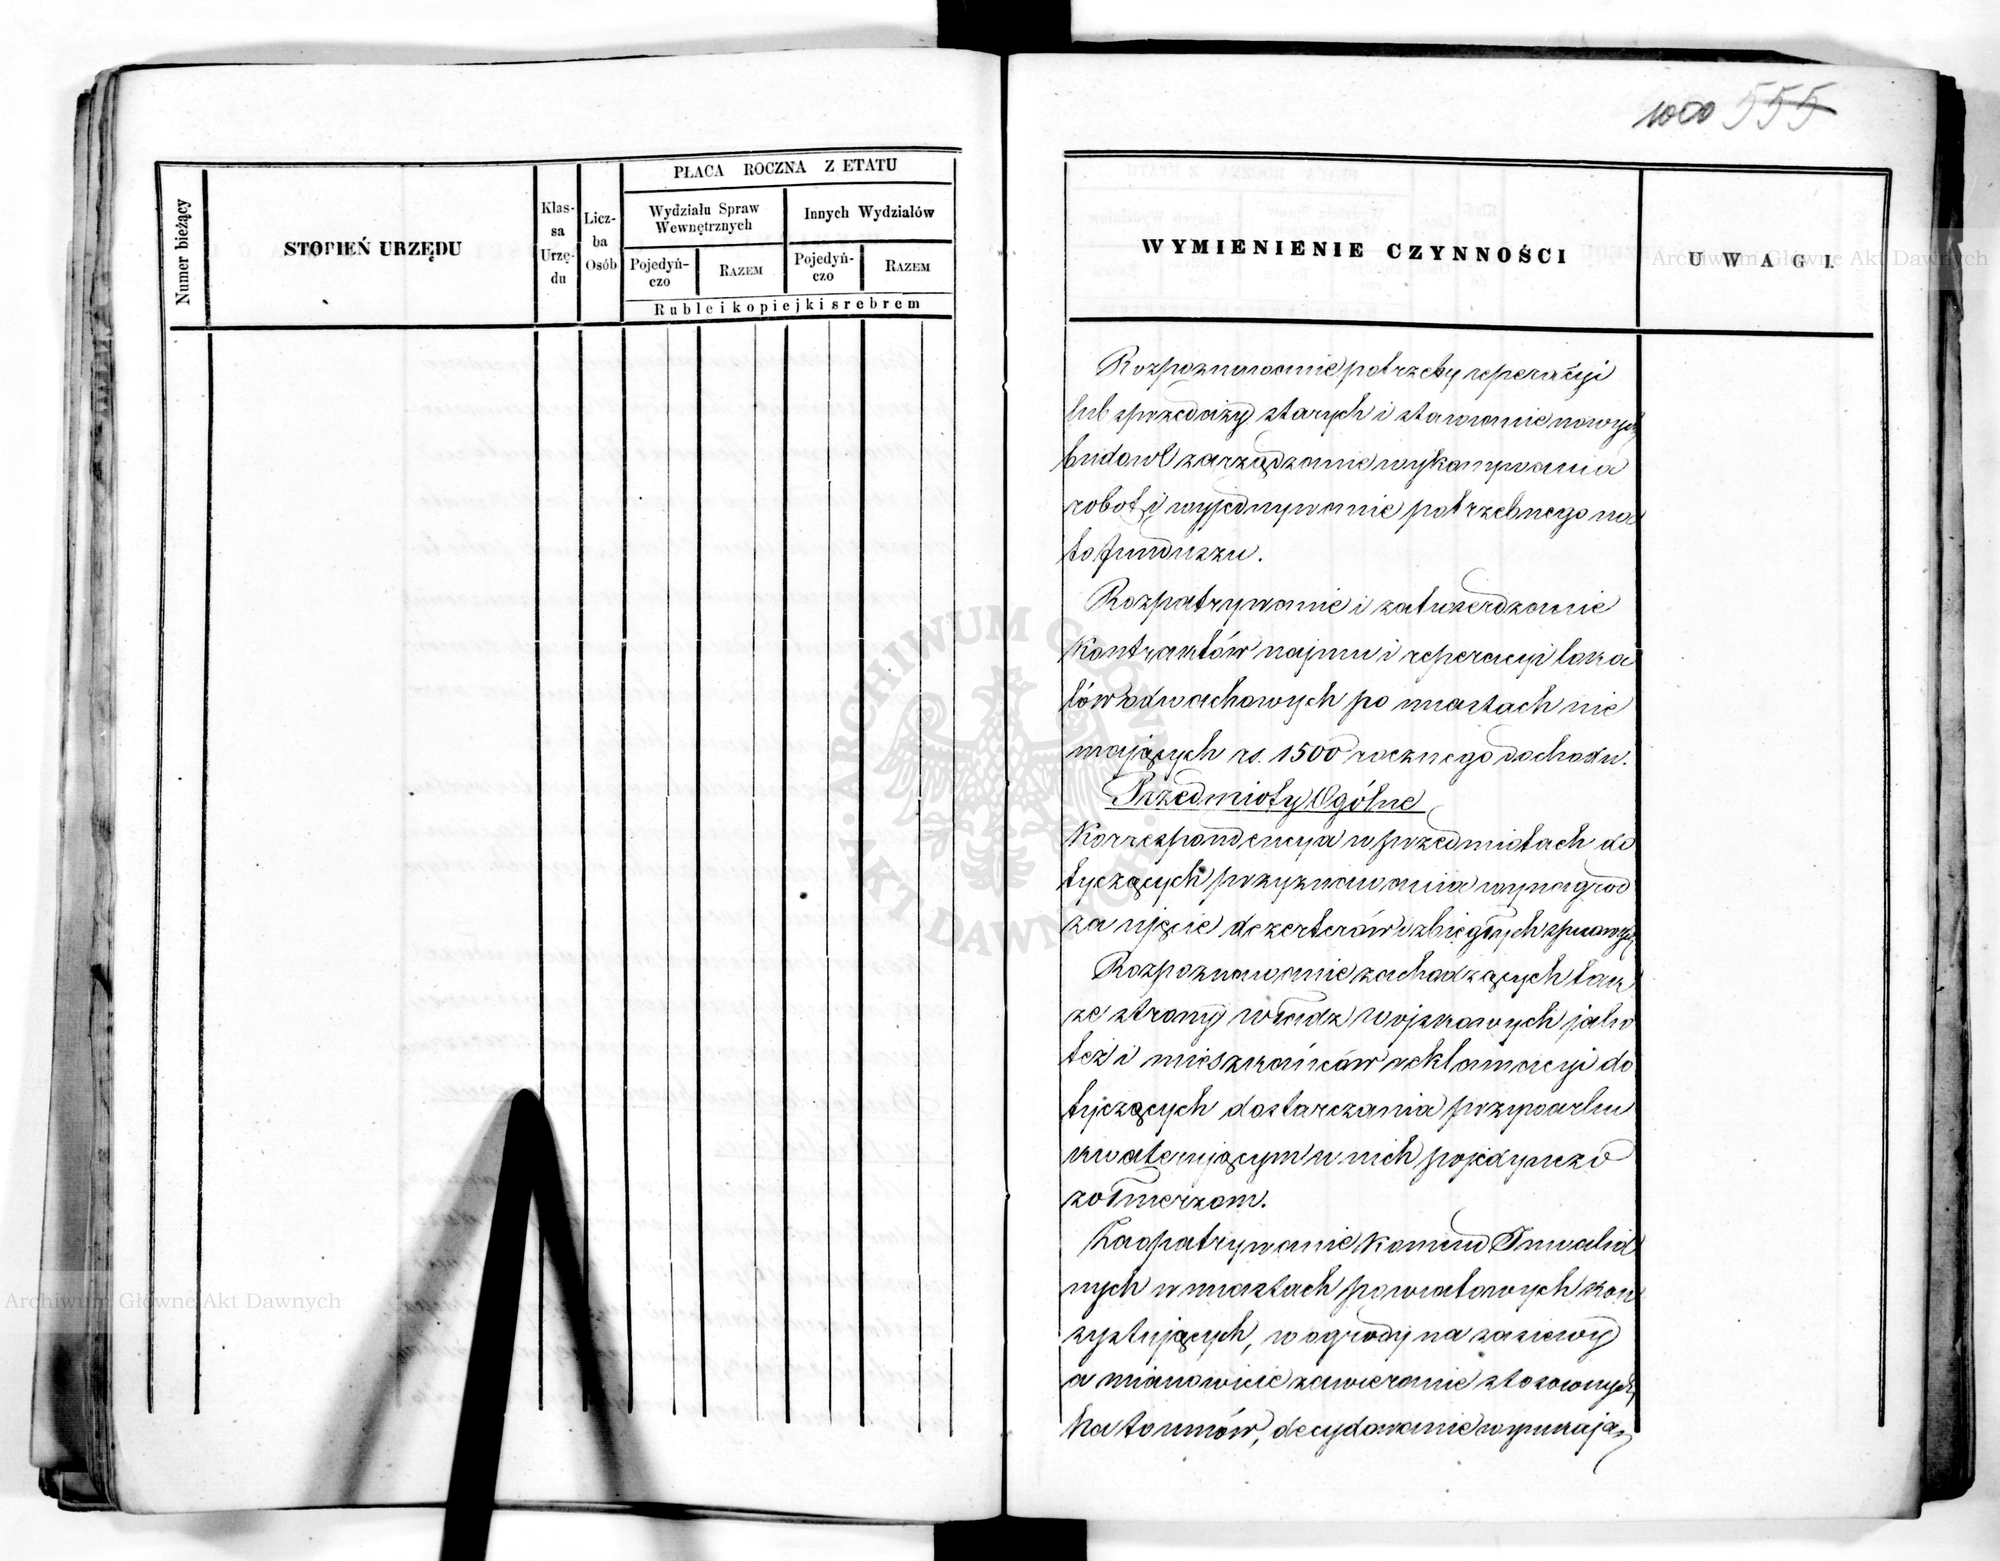 Numer bieżący
STOPIEŃ URZĘDU
Klas-
sa
Urzę-
du
Licz-
ba
Osób
PŁACA ROCZNA Z ETATU
Wydziału Spraw
Wewnętrznych
Innych Wydziałów
Pojedyń-
czo
RAZEM
Pojedyń-
czo
RAZEM
Ruble i kopiejki srebrem
1000 555
WYMIENIENIE CZYNNOŚCI
UWAGI.
Rozpoznawanie potrzeby reperacyi
lub sprzedaży starych i stawianie nowych
budowl zarządzanie wykonywania
robot i wyjednywanie potrzebnego na
to funduszu.
Rozpatrywanie i zatwierdzanie
Kontraktów najmu i reperacyi loka
lów odwachowych po miastach nie
mających rs. 1500 rocznego dochodu.
Przedmioty Ogólne
Korrespondencya w przedmiotach do
tyczących przyznawania wynagrod
za ujęcie dezerterów i zbiegłych
Rozpoznawanie zachodzących tak
ze strony władz wojskowych jako
też i mieszkańców reklamacyi do
tyczących dostarczania przywarku
kwaterującym w nich pojedynczo
żołnierzom.
Zaopatrywanie Komend Inwalid
nych w miastach powiatowych kon
systujących, w ogrody na zasiewy
a mianowicie zawieranie stosownych
Kątomów, decydowanie wynikają
ARCHIWUM GŁÓWNE AKT DAWNYCH
Archiwum Główne Akt Dawnych
Archiwum Główne Akt Dawnych